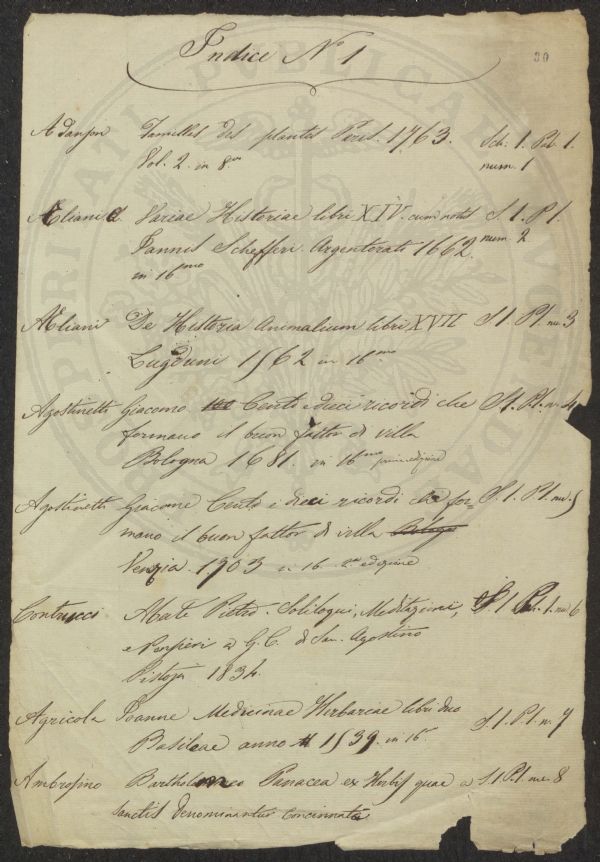 Indice N° 1
30
Adanson Familles des plantes Paris. 1763. Sch. 1. Pal. 1.
Vol. 2. in 8vo num. 1
Æliani Cl. Variae Historiae libri XIV. cum notis S. 1. P. 1.
Joannis Schefferi. Argentorati 1662. num. 2
in 16mo
Æliani De Historia Animalium libri XVII S. 1. P. 1. nu. 3
Lugduni 1562 in 16mo
Agostinetti Giacomo Cento e dieci ricordi che S. 1. P. 1. n. 4
formano il buon fattor di villa
Bologna 1681. in 16mo prima edizione
Agostinetti Giacomo Cento e dieci ricordi che for= S. 1. P. 1. nu. 5
mano il buon fattor di villa Bologna
Venezia. 1703 in 16. edizione
Contrucci Abate Pietro. Soliloqui, Meditazioni, S. 1. P. 1. nu. 6
e Pensieri a G. C. di San. Agostino
Pistoja 1834.
Agricola Joanne Medicinae Herbariae libri duo S. 1. P. 1. n. 7
Basileae anno 1539. in 16
Ambrosino Bartholomeo Panacea ex Herbis quae a S. 1. P. 1. nu. 8
Sanctis denominantur concinnata